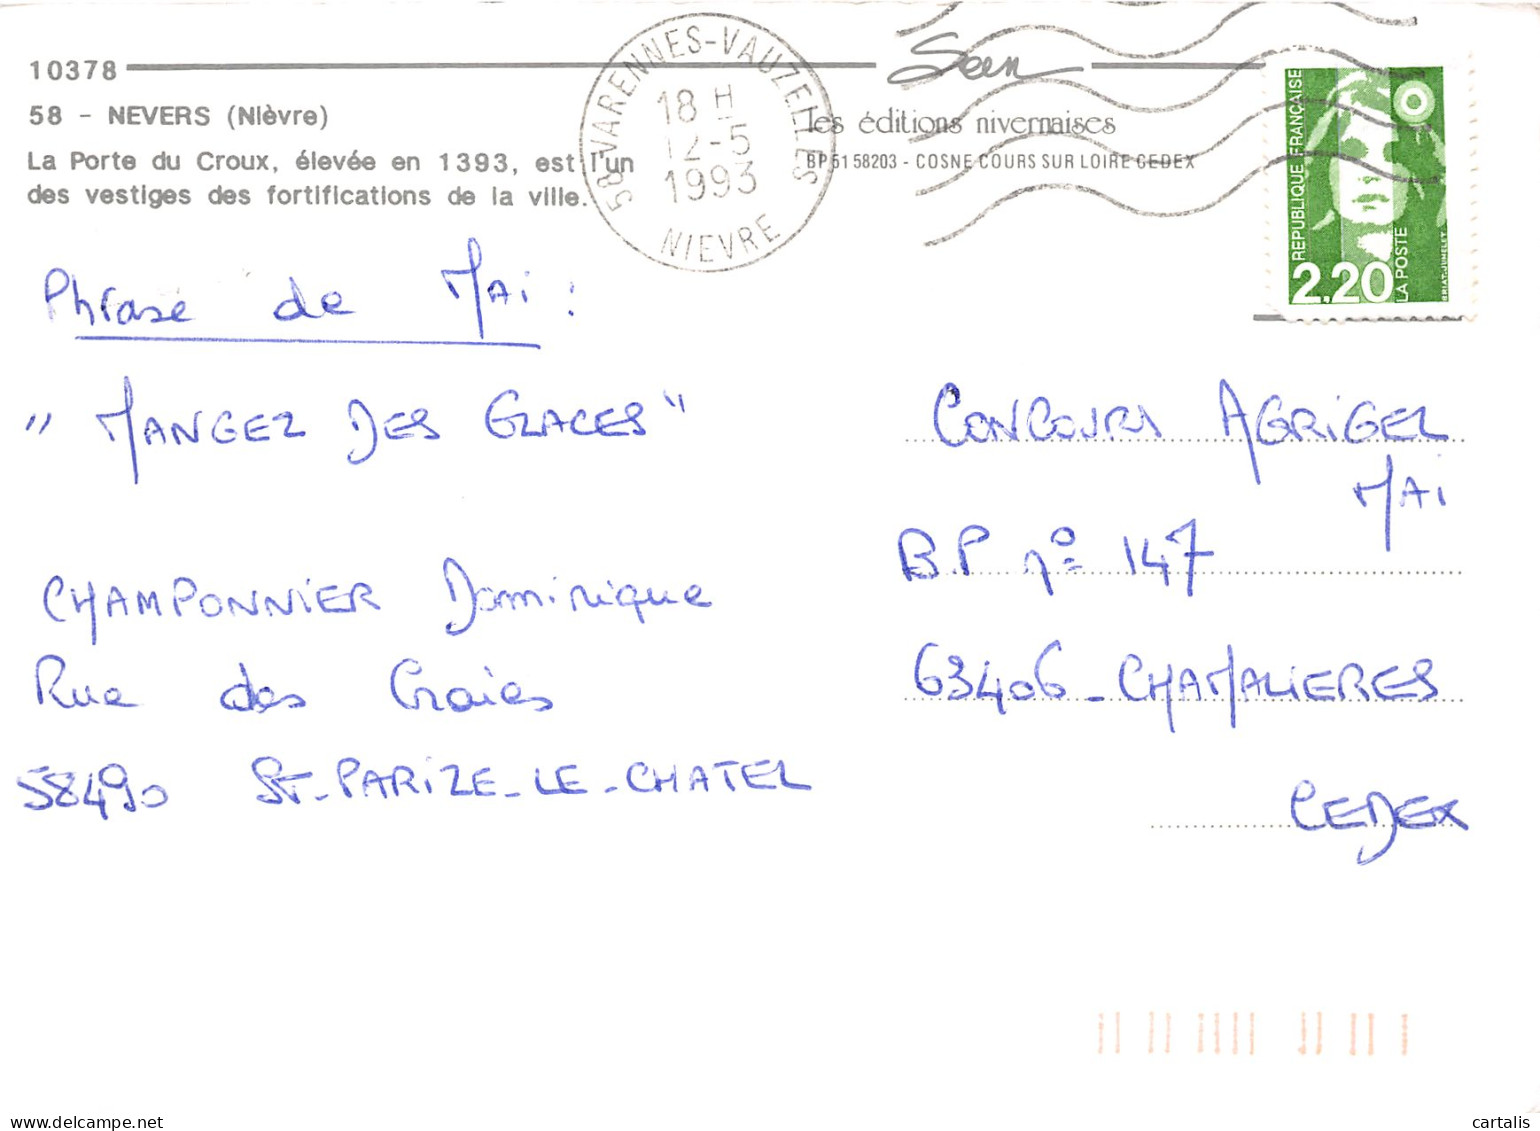 10378
58 - NEVERS (Nièvre)
La Porte du Croux, élevée en 1393, est l'un
des vestiges des fortifications de la ville.
58 VARENNES-VAUZELLES
18 H
12-5
1993
NIEVRE
les éditions nivernaises
BP 51 58203 - COSNE COURS SUR LOIRE CEDEX
REPUBLIQUE FRANÇAISE
2,20
LA POSTE
BRIAT-JUMELET
Phrase de MAi :
" MANGEZ DES GLACES "
CHAMPONNIER Dominique
Rue des Craies
58490 ST-PARIZE-LE-CHATEL
CONCOURS AGRiGEL
MAi
B.P. n° 147
63406 - CHAMALIERES
CEDEX
cartalis
delcampe.net